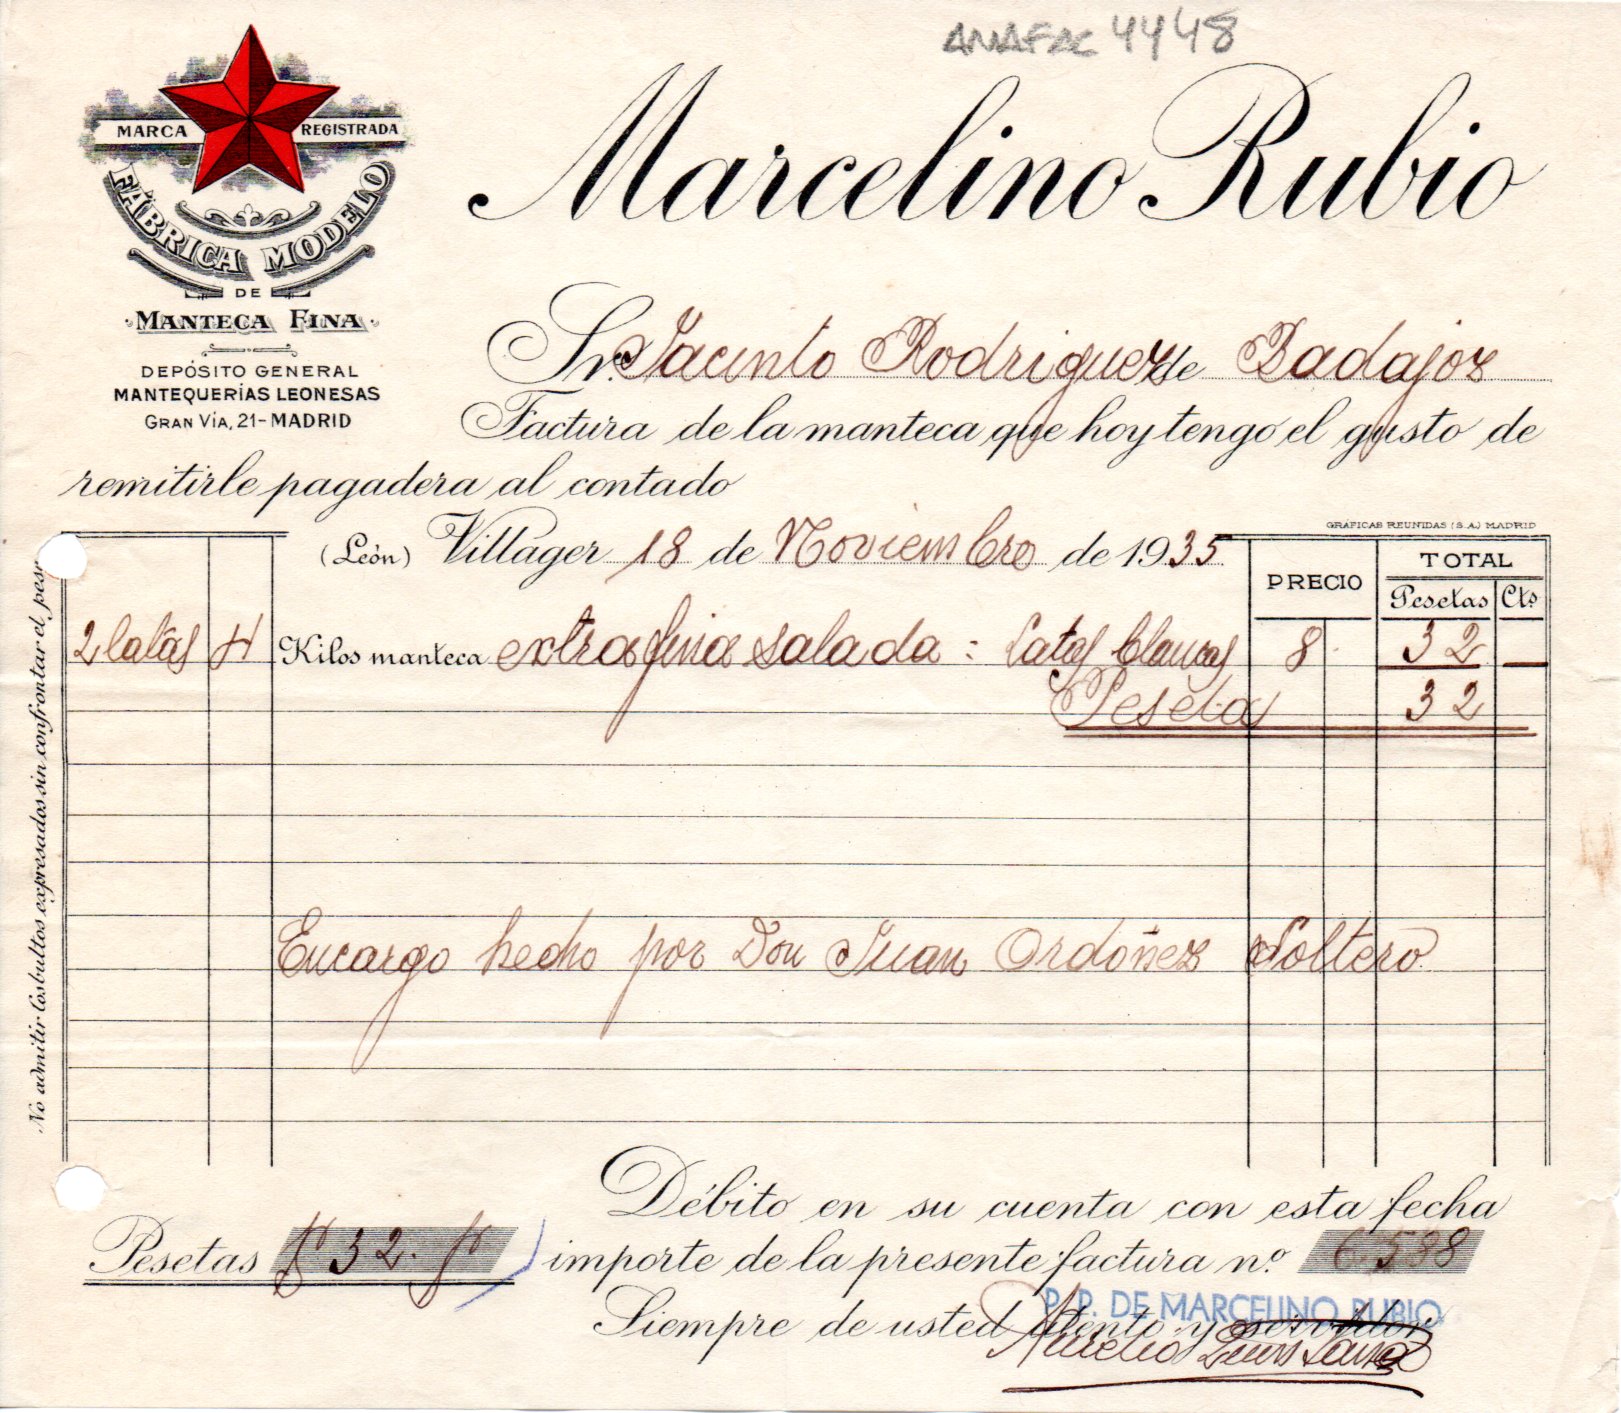 ANAFAC 4448
MARCA REGISTRADA
FÁBRICA MODELO
DE
MANTECA FINA
DEPÓSITO GENERAL
MANTEQUERÍAS LEONESAS
GRAN VÍA, 21-MADRID
Marcelino Rubio
Sr. Jacinto Rodriguez de Badajoz
Factura de la manteca que hoy tengo el gusto de
remitirle pagadera al contado
GRÁFICAS REUNIDAS (S.A.) MADRID
(León) Villáger 18 de Noviembre de 1935
PRECIO TOTAL
Pesetas Cts
2 latas 4 Kilos manteca extrafina salada: Latas blancas 8 32
Pesetas 32
Encargo hecho por Don Juan Ordóñez Soltero
No admitir los bultos expresados sin confrontar el peso
Débito en su cuenta con esta fecha
Pesetas 32. importe de la presente factura nº. 6.538
Siempre de usted atento y servidor
P. P. DE MARCELINO RUBIO
Aurelio